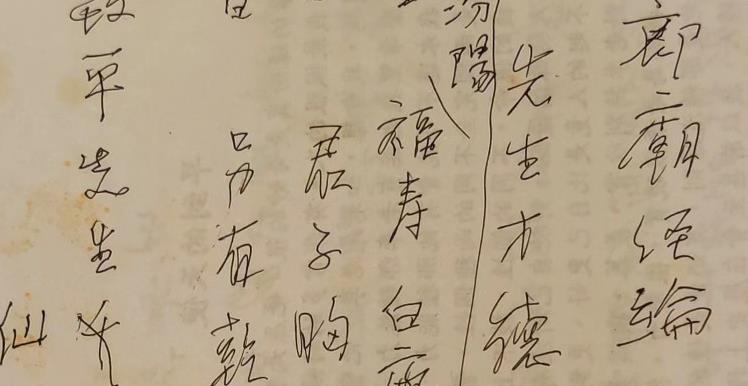 廊廟经綸
先生才德
汾陽
福寿 白
君子胸
另有乾
平先生
仙